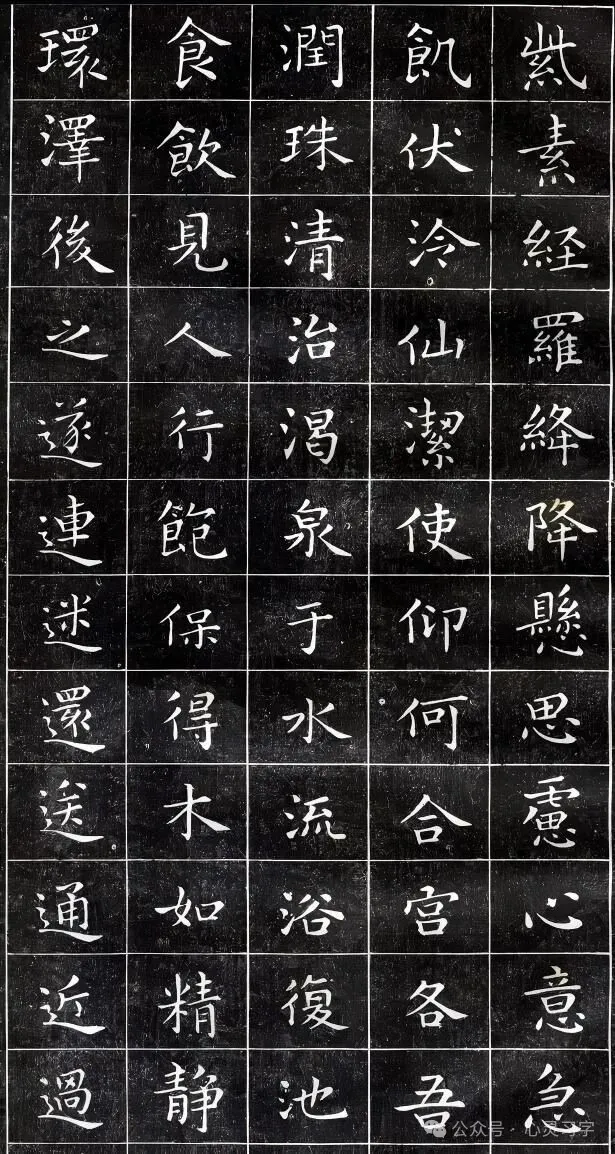 紫素経羅絳降懸思慮心意急
飢伏泠仙潔使仰何合宫各吾
潤珠清治渴泉于水流浴復池
食飲見人行飽保得木如精静
環澤後之遂連迷還送通近過
公众号 · 心灵习字